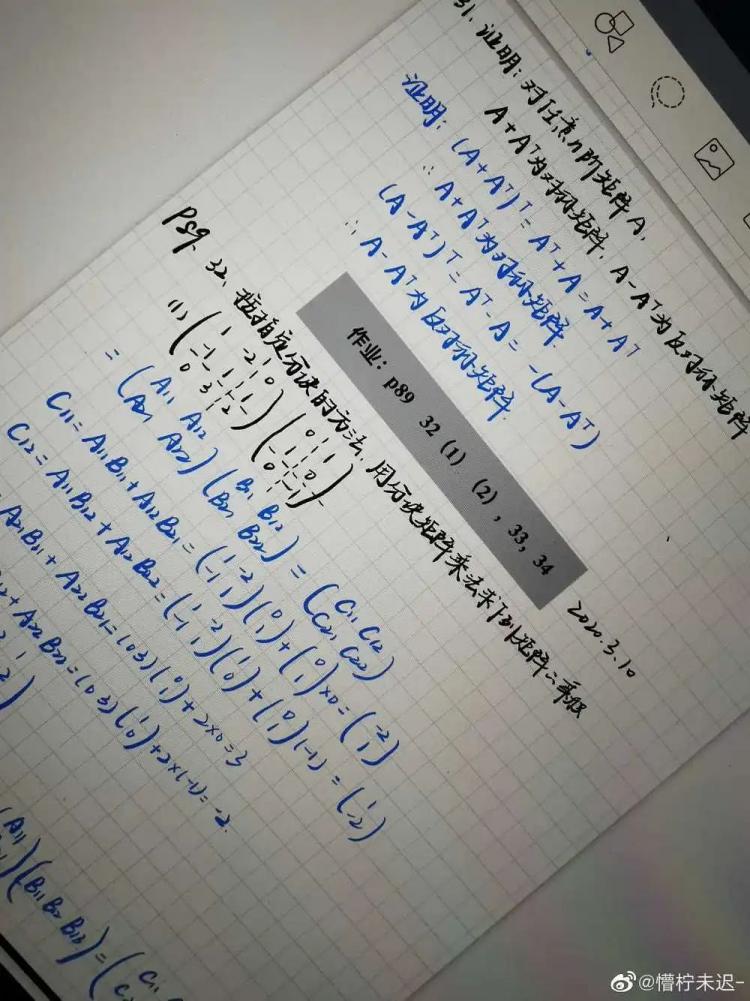 31. 证明：对任意n阶矩阵A,
A+Aᵀ为对称矩阵, A-Aᵀ为反对称矩阵
证明： (A+Aᵀ)ᵀ = Aᵀ+A = A+Aᵀ
∴ A+Aᵀ为对称矩阵.
(A-Aᵀ)ᵀ = Aᵀ-A = -(A-Aᵀ)
∴ A-Aᵀ为反对称矩阵.
作业：p89 32 (1) (2), 33, 34
2020.3.10
P89. 32、按指定分块的方法, 用分块矩阵乘法求下列矩阵之乘积
(1) (1 -2 0
-1 1 1
0 3 2) (0 1
1 0
0 -1)
= (A11 A12
A21 A22) (B11 B12
B21 B22) = (C11 C12
C21 C22)
C11 = A11B11 + A12B21 = (1 -2
-1 1)(0
1) + (0
1)×0 = (-2
1)
C12 = A11B12 + A12B22 = (1 -2
-1 1)(1
0) + (0
1)(-1) = (1
-2)
= A21B11 + A22B21 = (0 3)(0
1) + 2×0 = 3
+ A22B22 = (0 3)(1
0) + 2×(-1) = -2.
(B11 B12 B13) = (C11
@懵柠未迟-